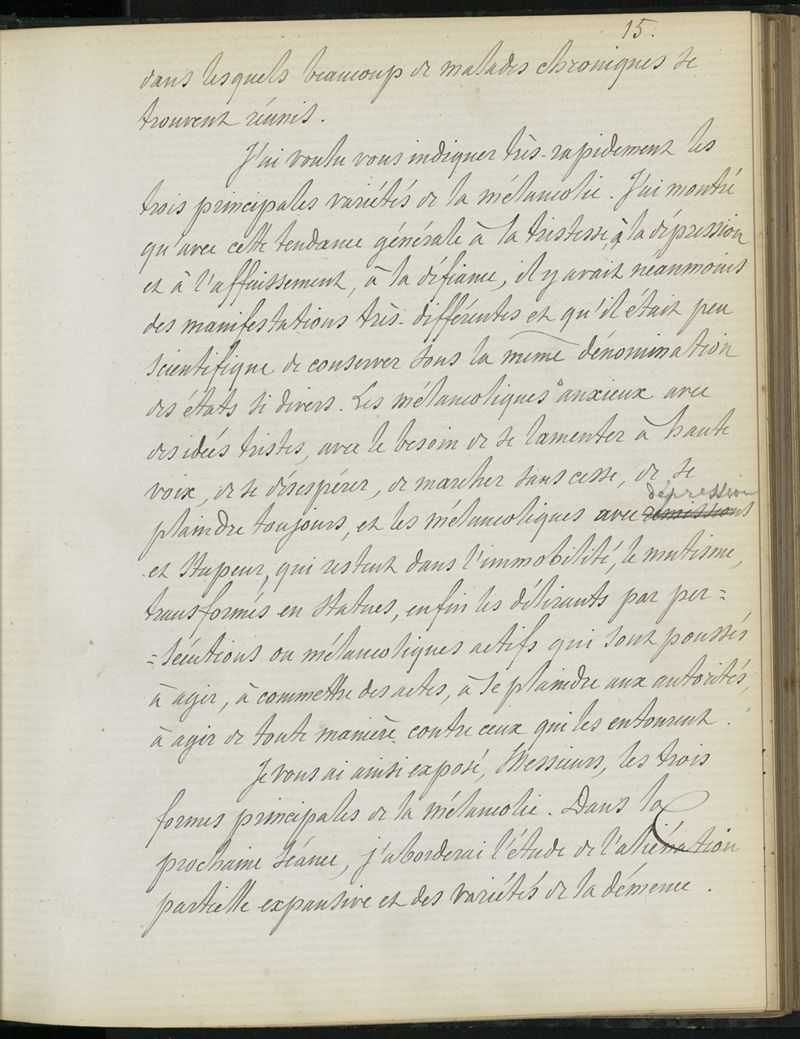 15.
dans lesquels beaucoup de malades chroniques se
trouvent réunis.
J'ai voulu vous indiquer très-rapidement les
trois principales variétés de la mélancolie. J'ai montré
qu'avec cette tendance générale à la tristesse, à la dépression
et à l'affaissement, à la défiance, il y avait néanmoins
des manifestations très-différentes et qu'il était peu
scientifique de conserver sous la même dénomination
des états si divers. Les mélancoliques anxieux avec
des idées tristes, avec le besoin de se lamenter à haute
voix, de se désespérer, de marcher sans cesse, de se
dépression
plaindre toujours, et les mélancoliques avec rémissions
et stupeur, qui restent dans l'immobilité, le mutisme,
transformés en statues, enfin les délirants par per=
=sécutions ou mélancoliques actifs qui sont poussés
à agir, à commettre des actes, à se plaindre aux autorités,
à agir de toute manière contre ceux qui les entourent.
Je vous ai ainsi exposé, Messieurs, les trois
formes principales de la mélancolie. Dans la
prochaine séance, j'aborderai l'étude de l'aliénation
partielle expansive et des variétés de la démence.